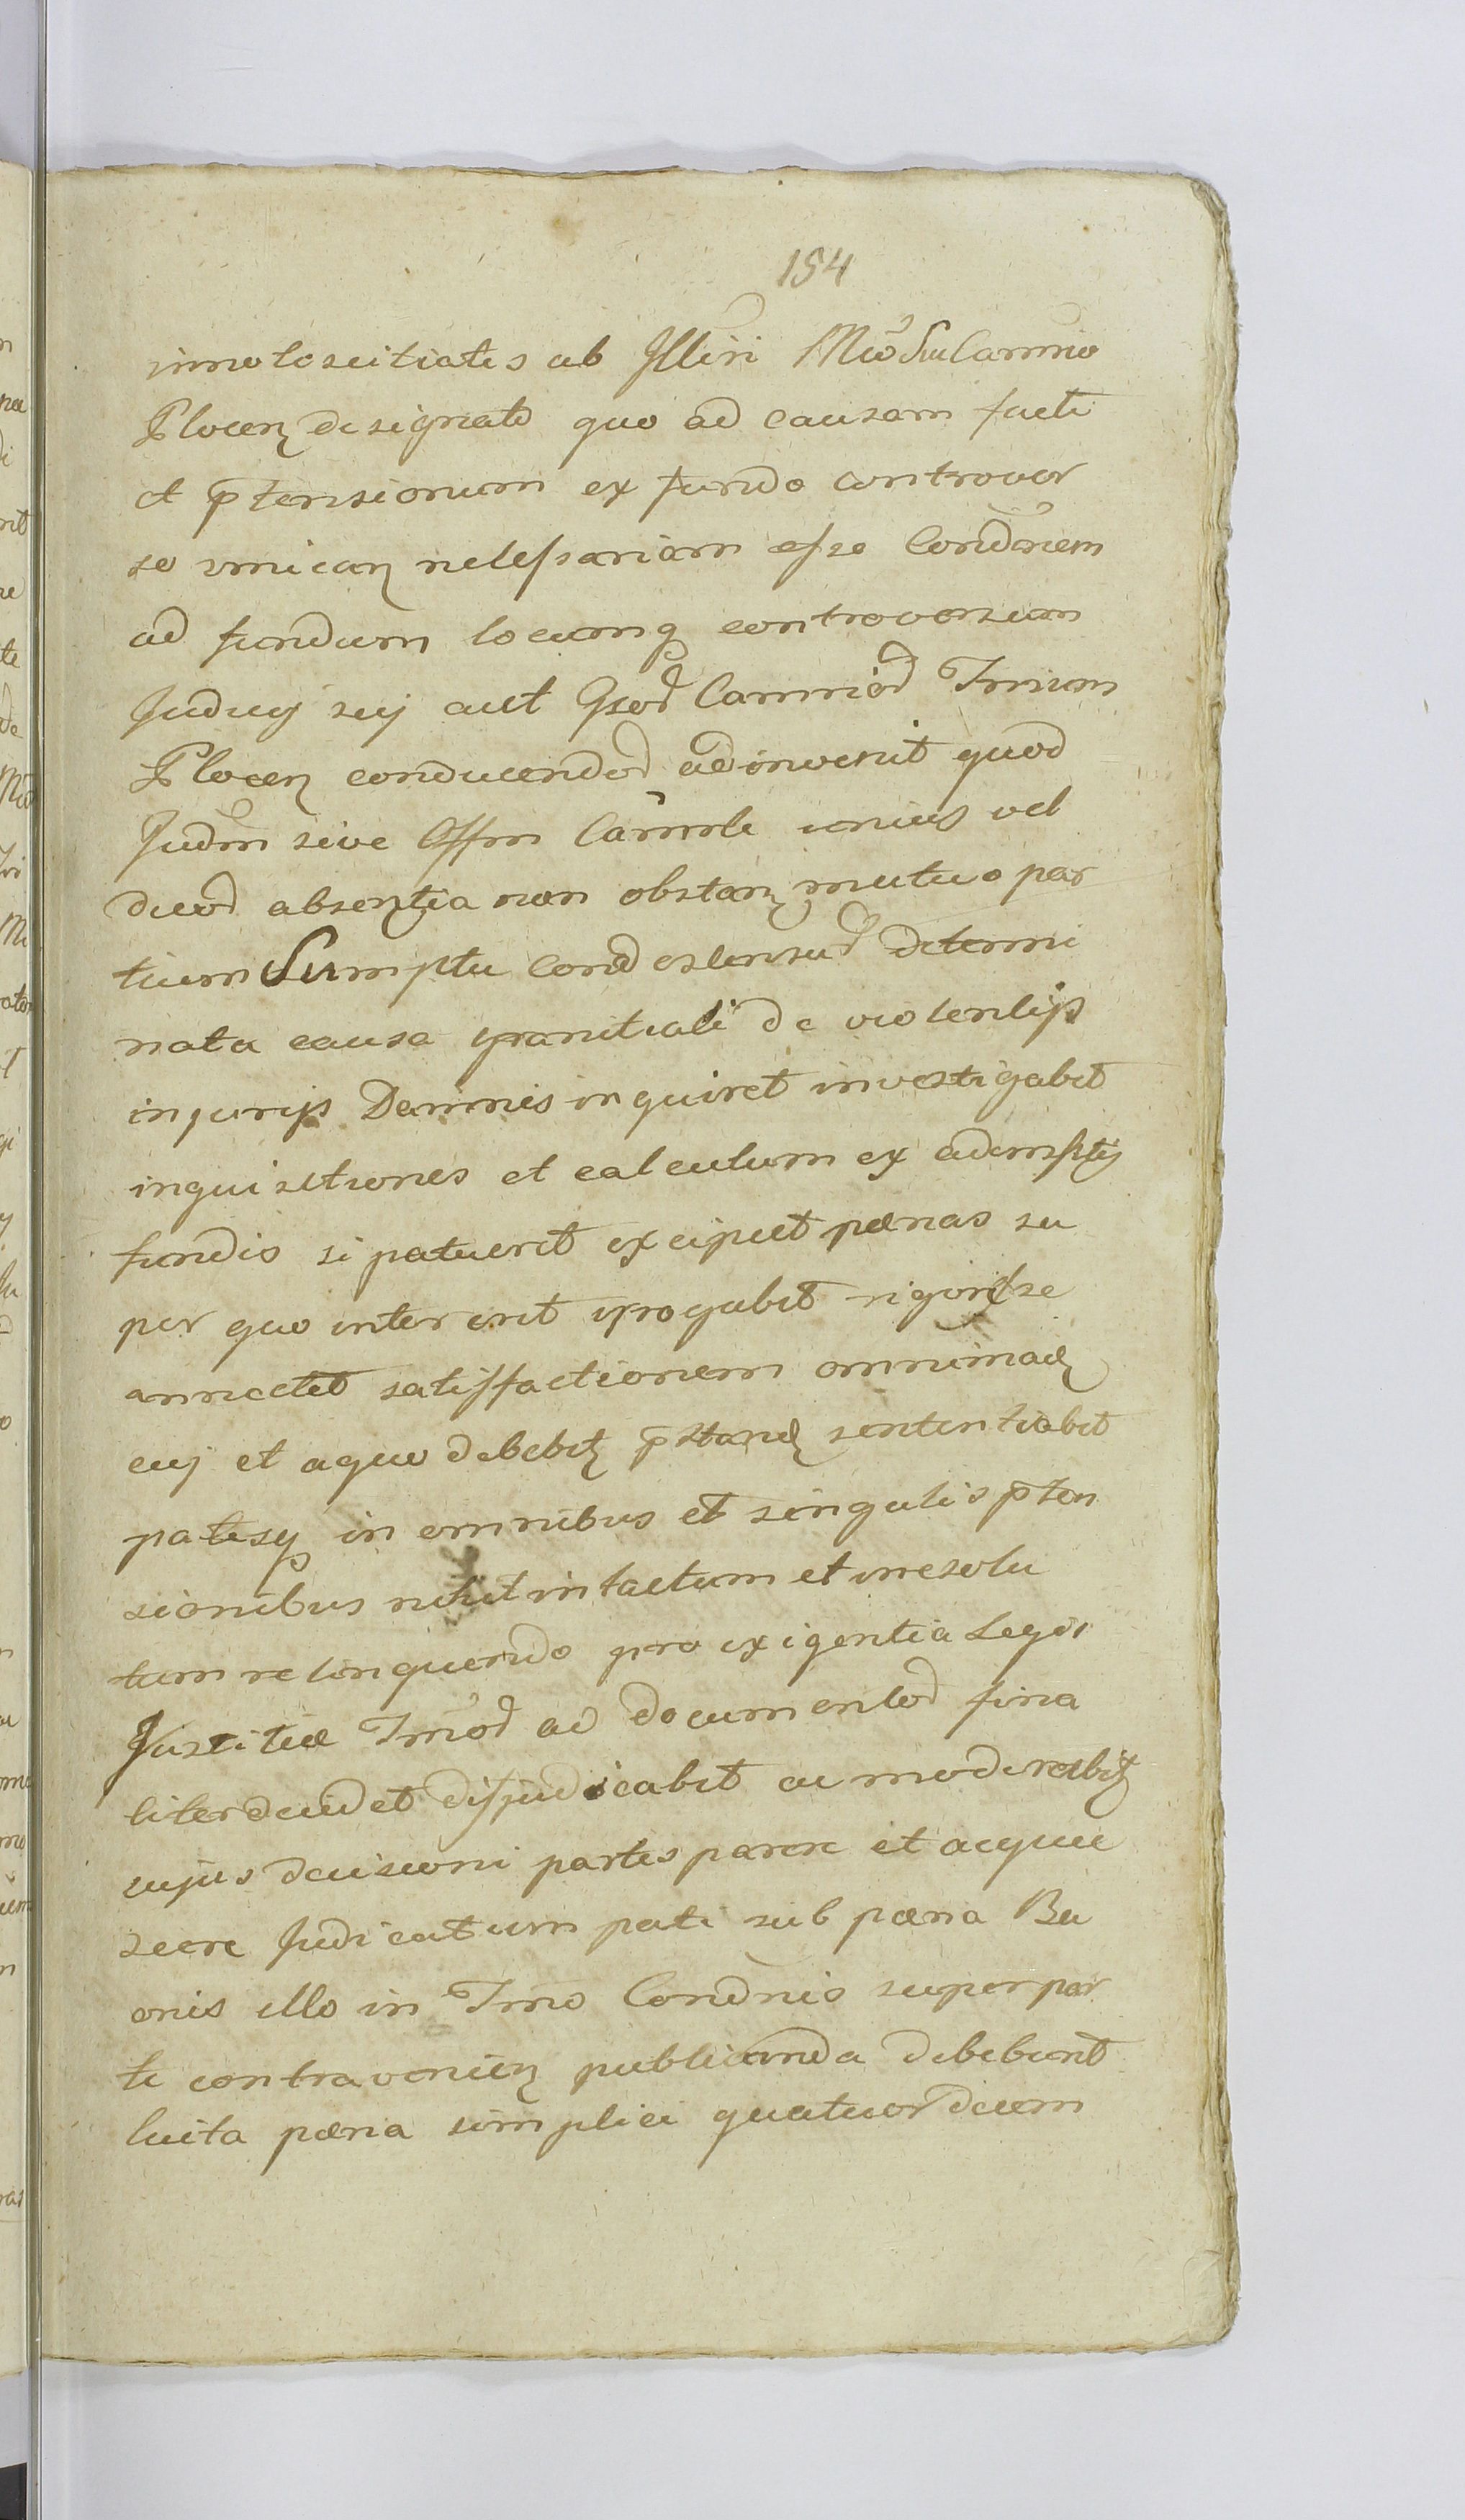 154
innotoscitiates ab Illiri Mio Succamrio
Plocen designatо quo ad causam facti
et ptensionum ex fundo controver
so unican necessariam esse Condnem
ad fundum locumq controversum
Judicy suy aut Gsod Camriod Trmum
Plocen conducendod adinvenit quod
Judm sive Offm Camrle unius vel
duod absentia non obstan mutuo par
tium Sumptu Condescensud determi
nata causa granitiali de violentijs
injurijs Damnis inquiret investigabit
inquisitiones et calculum ex ademptis
fundis si patuerit excipiet pænas su
per quo intererit irrogabit rigorose
annectet satisfactionem omnimod
cuj et a quo debebit pstand sententiabit
patesq in omnibus et singulis pten
sionibus nihil intactum et irresolu
tum relinquendo pro exigentia Legis
Justitiæ Trmod ac documentod fina
liter decidet dijudicabit ac moderabit
cujus decisioni partes parere et acquie
scere Judicatum pati sub pæna Ba
onis illo in Trmo Condnis super par
te contravenien publicanda debebunt
luita pæna simplici quatuordecem